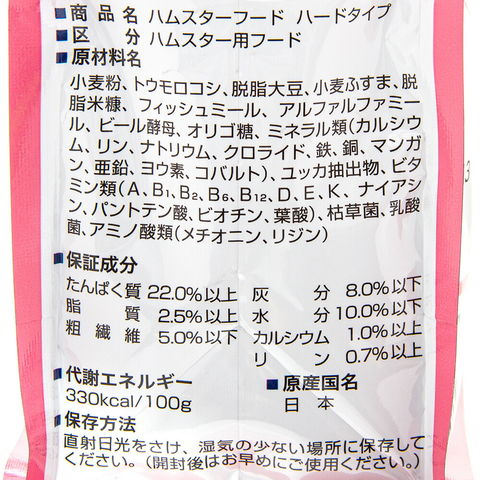 ■商品名 ハムスターフード ハードタイプ
■区分 ハムスター用フード
■原材料名
小麦粉、トウモロコシ、脱脂大豆、小麦ふすま、脱
脂米糠、フィッシュミール、アルファルファミー
ル、ビール酵母、オリゴ糖、ミネラル類(カルシウ
ム、リン、ナトリウム、クロライド、鉄、銅、マンガ
ン、亜鉛、ヨウ素、コバルト)、ユッカ抽出物、ビタ
ミン類(A、B1、B2、B6、B12、D、E、K、ナイアシ
ン、パントテン酸、ビオチン、葉酸)、枯草菌、乳酸
菌、アミノ酸類(メチオニン、リジン)
■保証成分
たんぱく質 22.0%以上 灰分 8.0%以下
脂質 2.5%以上 水分 10.0%以下
粗繊維 5.0%以下 カルシウム 1.0%以上
リン 0.7%以上
■代謝エネルギー ■原産国名
330kcal/100g 日本
■保存方法
直射日光をさけ、湿気の少ない場所に保存して
ください。(開封後はお早めにご使用ください。)